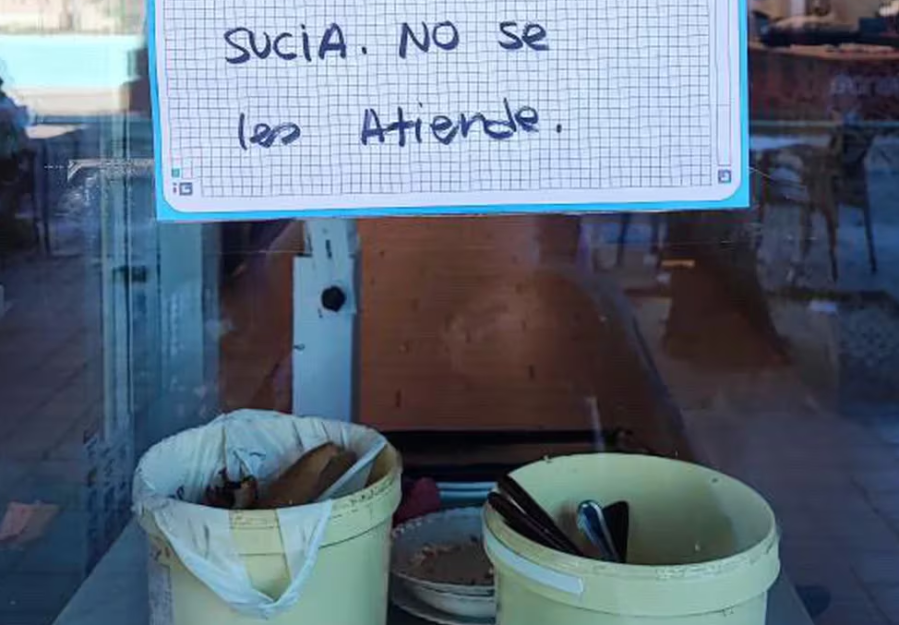 SUCIA. NO Se
les Atiende.